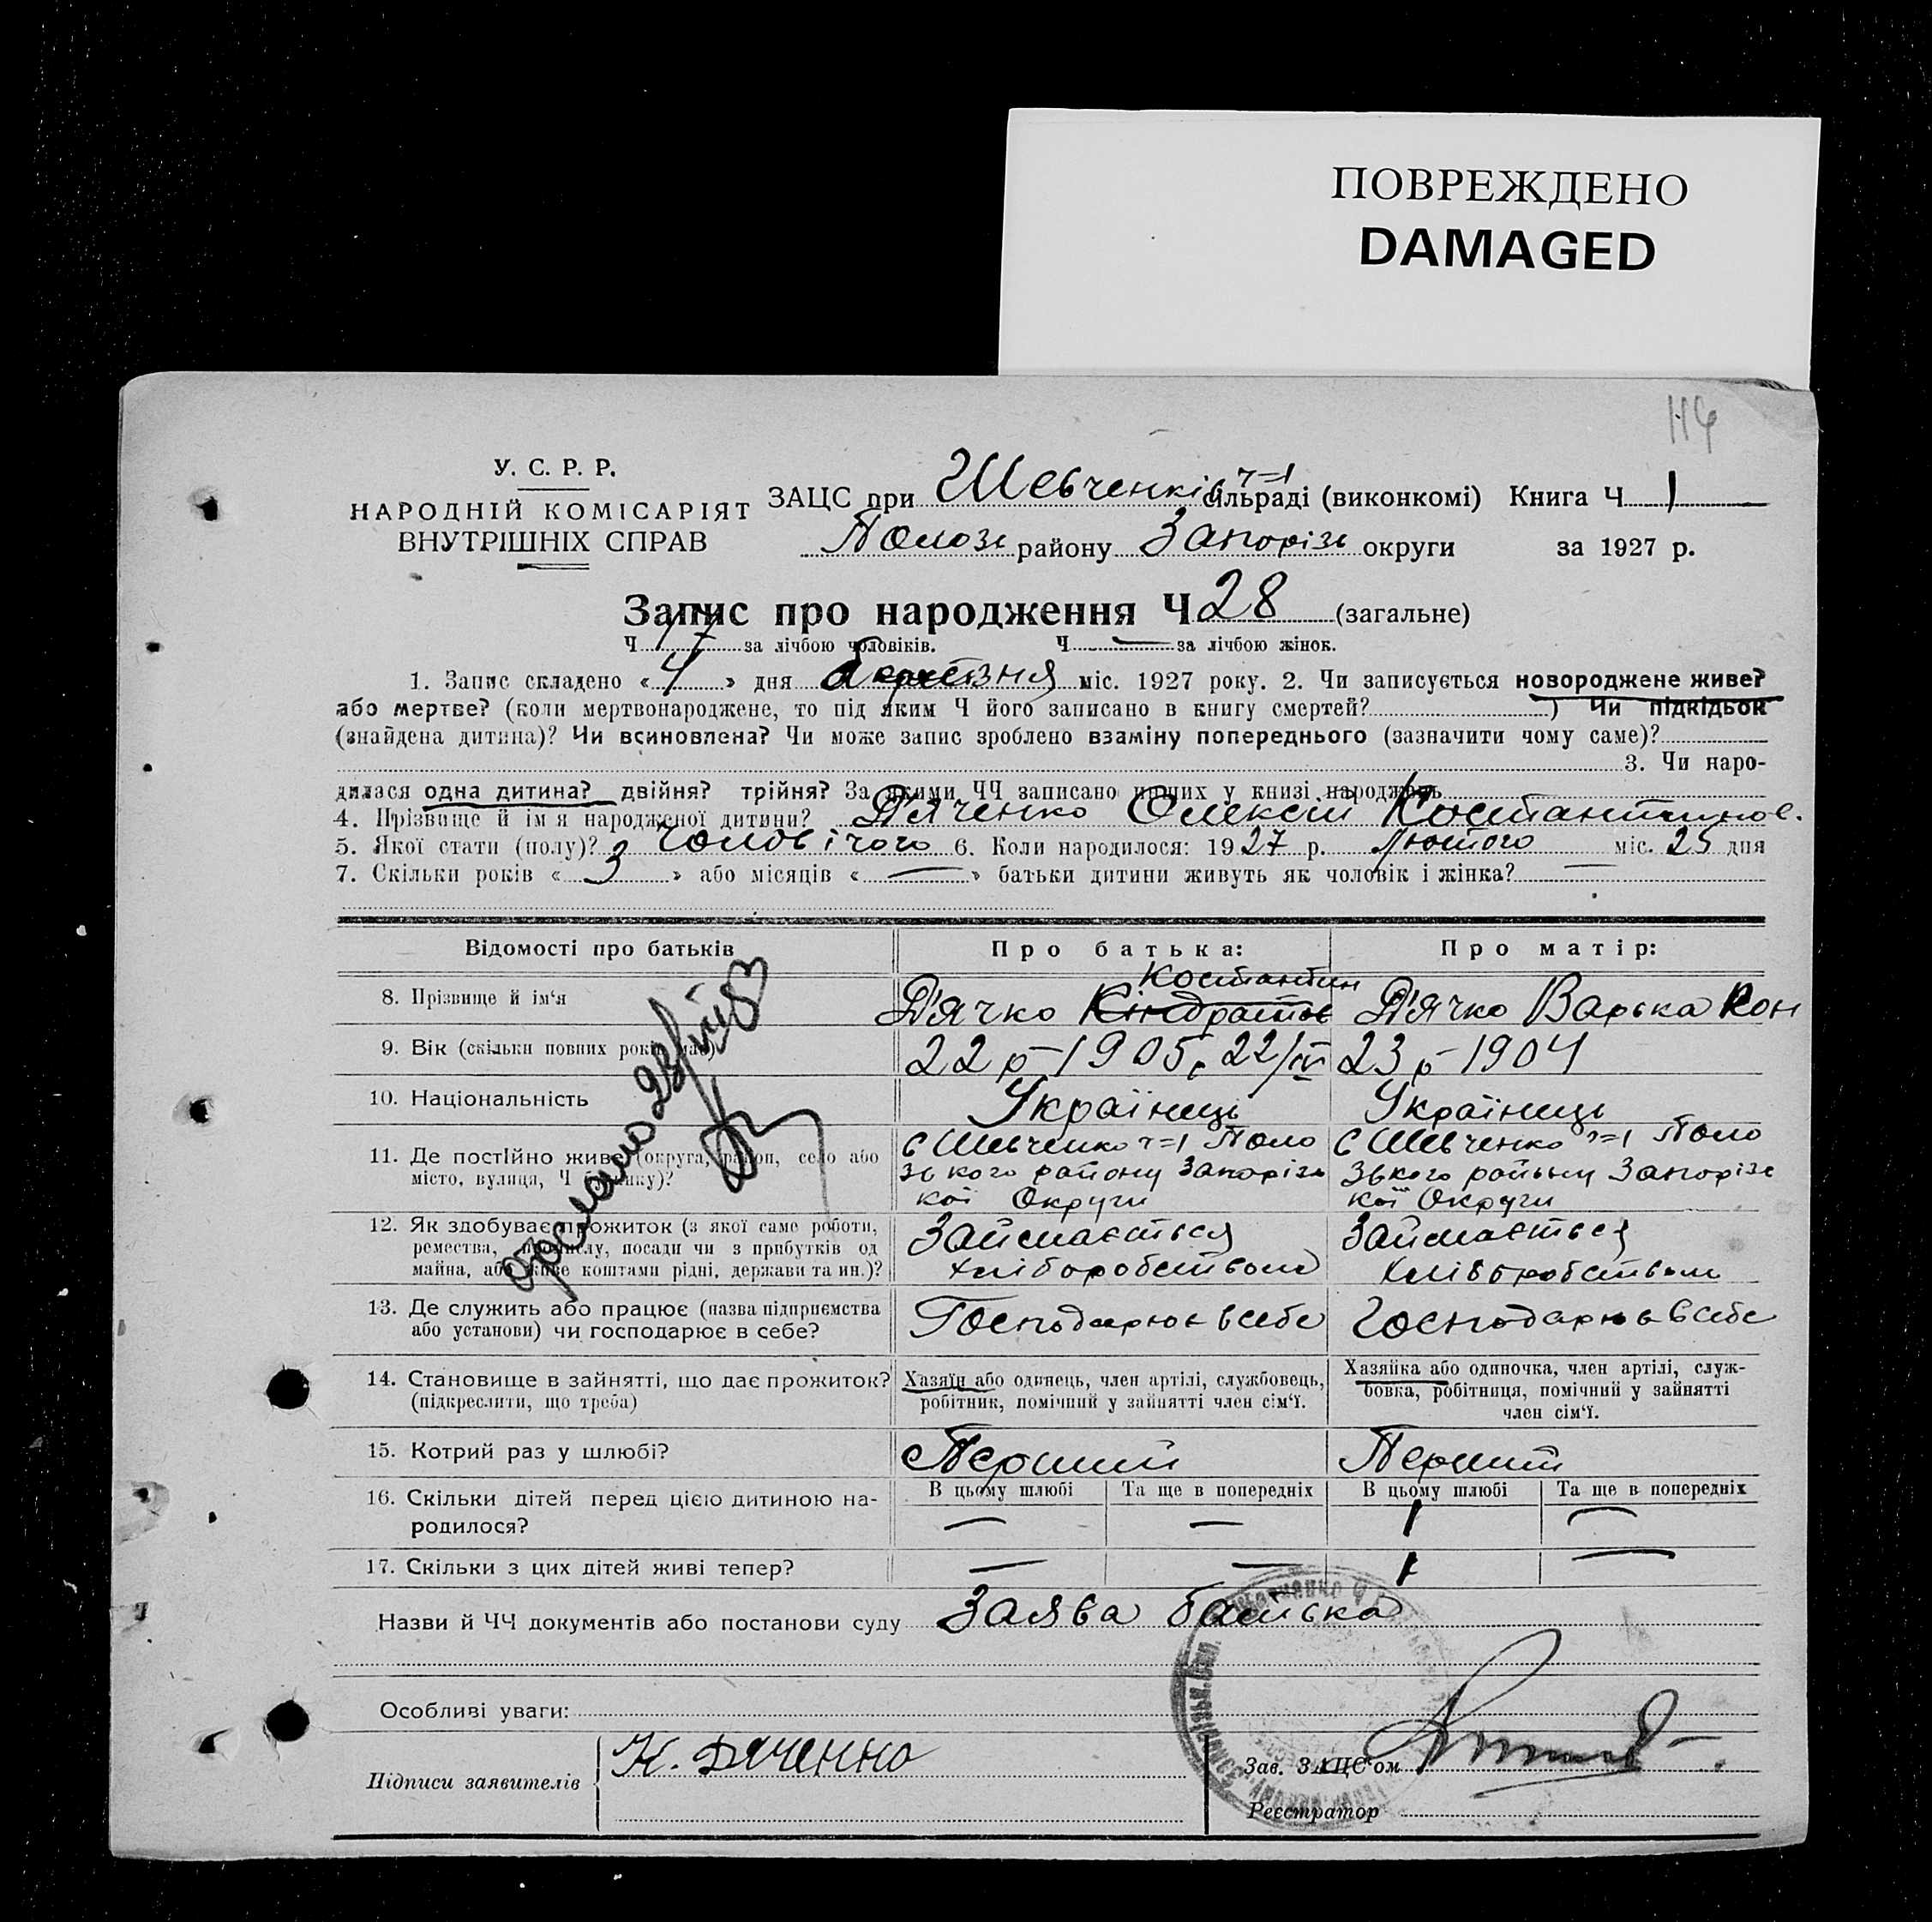 ПОВРЕЖДЕНО
DAMAGED
114
У. С. Р. Р.
НАРОДНІЙ КОМІСАРІЯТ
ВНУТРІШНІХ СПРАВ
ЗАЦС при Шевченків ч=1 сільраді (виконкомі) Книга Ч 1
Полозь району Запорізь округи за 1927 р.
Запис про народження Ч 28 (загальне)
Ч 17 за лічбою чоловіків. Ч — за лічбою жінок.
1. Запис складено « 4 » дня березня міс. 1927 року. 2. Чи записується новороджене живе?
або мертве? (коли мертвонароджене, то під яким Ч його записано в книгу смертей? ) Чи підкідьок
(знайдена дитина)? Чи всиновлена? Чи може запис зроблено взаміну попереднього (зазначити чому саме)?
3. Чи наро-
дилася одна дитина? двійня? трійня? За якими ЧЧ записано інших у книзі народжень
4. Прізвище й ім'я народженої дитини? Д'яченко Олексій Костантинов.
5. Якої стати (полу)? чоловічого 6. Коли народилося: 1927 р. Лютого міс. 25 дня
7. Скільки років « 3 » або місяців « — » батьки дитини живуть як чоловік і жінка? —
Відомості про батьків Про батька: Про матір:
Костантин
8. Прізвище й ім'я Д'ячко Кіндратов Д'ячко Варька Кон
9. Вік (скільки повних років має) 22 р – 1905 р 22/IV 23 р – 1904
10. Національність Українець Українець
11. Де постійно живе (округа, район, село або
місто, вулиця, Ч будинку)?
С Шевченко ч=1 Поло
зького району Запорізь
кої Округи
С Шевченко ч=1 Поло
зького району Запорізь
кої Округи
12. Як здобуває прожиток (з якої саме роботи,
ремества, промислу, посади чи з прибутків од
майна, або живе коштами рідні, держави та ин.)?
Займається
хліборобством
Займається
хліборобством
13. Де служить або працює (назва підприємства
або установи) чи господарює в себе?
Господарює в себе Господарює в себе
14. Становище в зайнятті, що дає прожиток?
(підкреслити, що треба)
Хазяїн або одинець, член артілі, службовець,
робітник, помічний у зайнятті член сім'ї.
Хазяйка або одиночка, член артілі, служ-
бовка, робітниця, помічний у зайнятті
член сім'ї.
15. Котрий раз у шлюбі? Перший Перший
16. Скільки дітей перед цією дитиною на-
родилося?
В цьому шлюбі Та ще в попередніх В цьому шлюбі Та ще в попередніх
— — 1 —
17. Скільки з цих дітей живі тепер? — — 1 —
Назви й ЧЧ документів або постанови суду Заява батька
Особливі уваги:
Підписи заявителів К. Дяченко
Зав. ЗАЦС'ом
Реєстратор